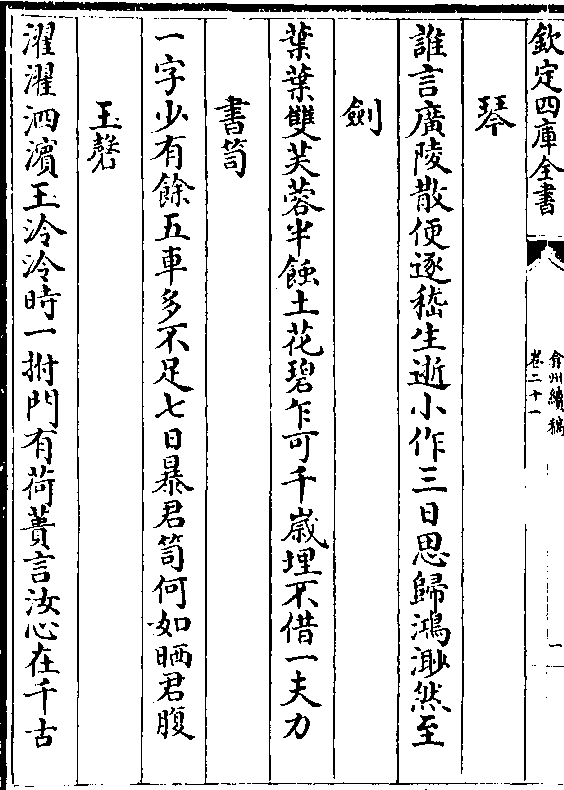 欽定四庫全書
弇州續稿
卷二十一
一
琴
誰言廣陵散便逐嵇生逝小作三日思歸鴻渺然至
劍
葉葉雙芙蓉半蝕土花碧乍可千歲埋不借一夫力
書笥
一字少有餘五車多不足七日暴君笥何如晒君腹
玉磬
濯濯泗濱玉泠泠時一拊門有荷蕢言汝心在千古